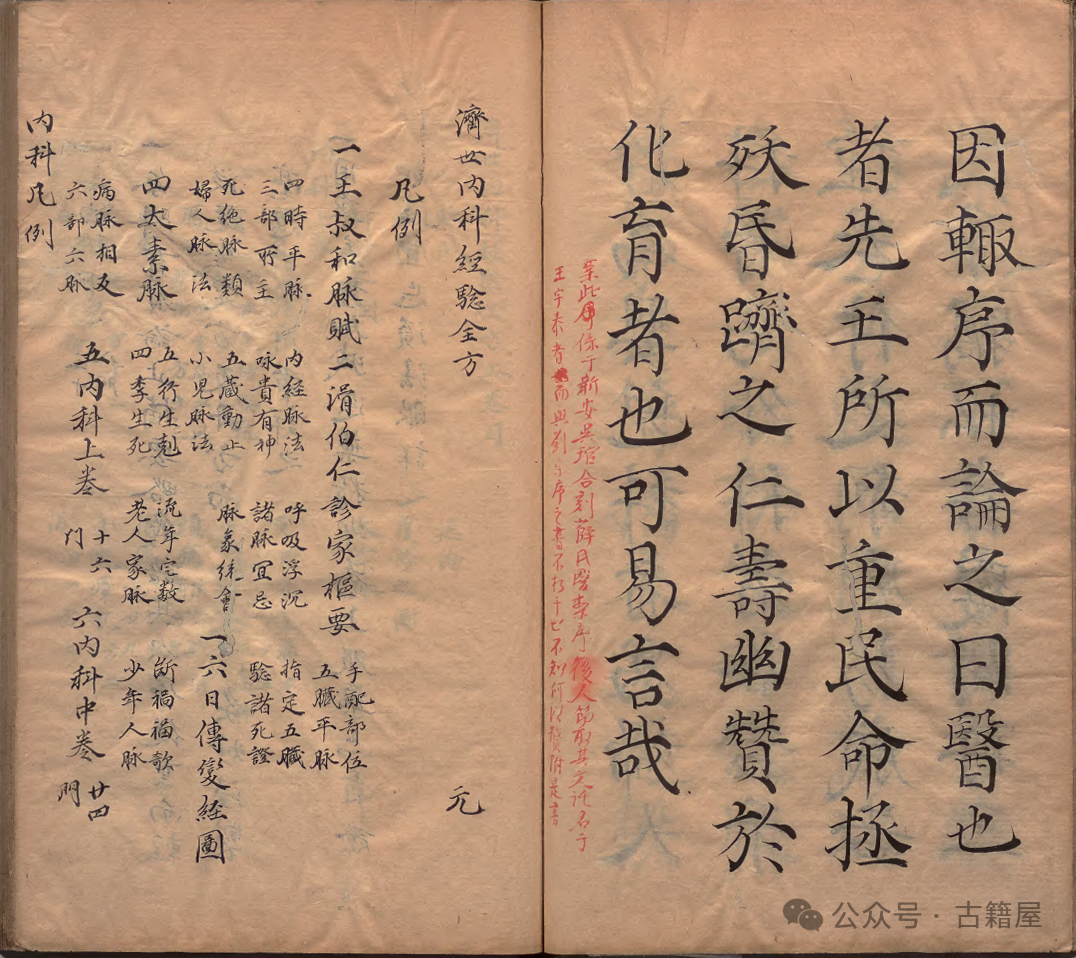 因輙序而論之曰醫也
者先王所以重民命拯
殀昬躋之仁壽幽贊於
化育者也可易言哉
業此序係于新安吳琯合刻薛氏醫案序後人節取其文托名于
王宇泰者而與劉
濟世內科經驗全方 元
凡例
一王叔和脉賦二滑伯仁診家樞要 手配部位 五臟平脉
四時平脉 內經脉法 呼吸浮沉 指定五臟
三部所主 咏貴有神 諸脉宜忌 驗諸死證
死絶脉類 五蔵動止 脉象統會 一六日傳變经圖
婦人脉法 小児脉法
四太素脉 五行生剋 流年定数 斷禍福歌
四季生死 老人家脉 少年人脉
病脉相反 五內科上卷 十六门 六內科中卷 廿四門
六部六脉
內科凡例
公众号 · 古籍屋